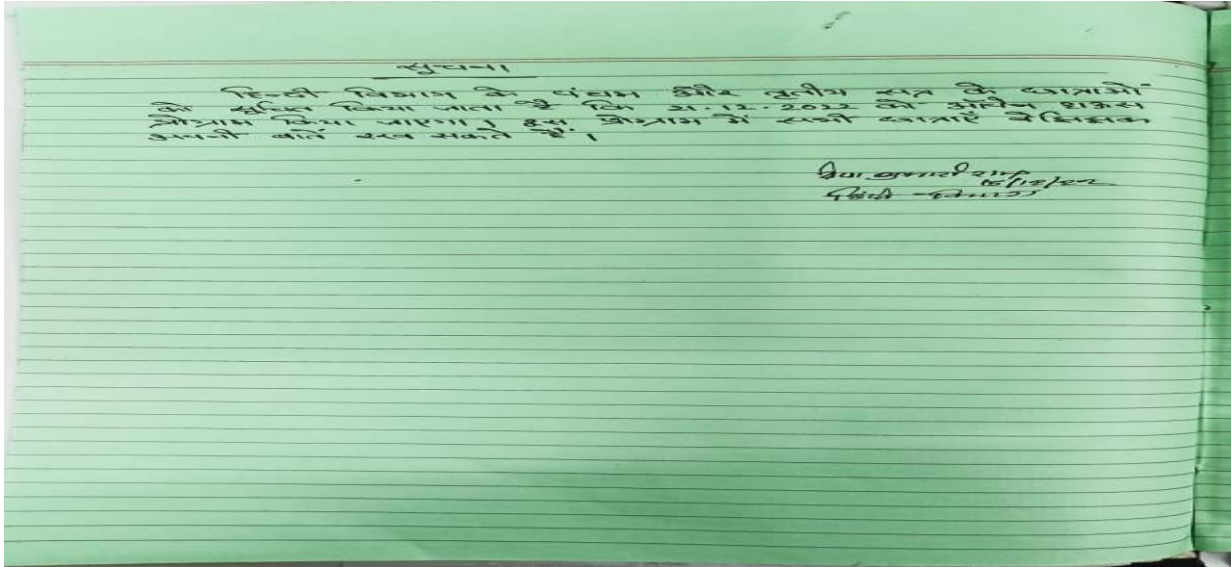 सूचना
हिन्दी विभाग के पंचम और तृतीय सत्र के छात्राओं
को सूचित किया जाता है कि 21.12.2022 को ओपेन हाऊस
प्रोग्राम किया जाएगा। इस प्रोग्राम में सभी छात्राएँ बेझिझक
अपनी बातें रख सकते हैं।
कुमारी
हिंदी विभाग